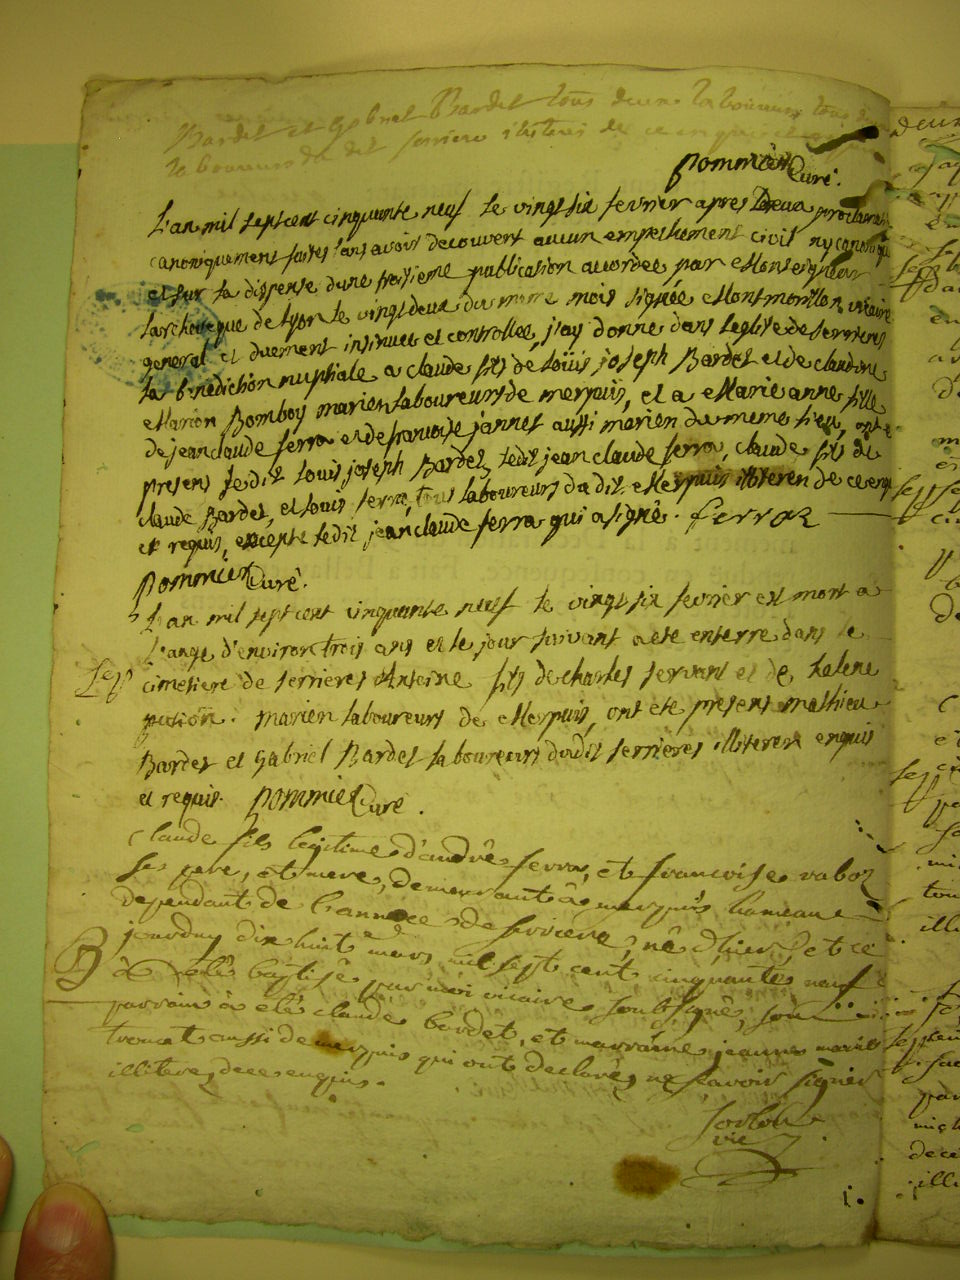 Bardet et gabriel Bardet tous deux laboureurs tous
laboureurs du dit serriere illiteres de ce enquis et
pommier Curé.
L'an mil sept cent cinquante neuf le vingt six fevrier apres Deux proclamations
canoniquement faites sans avoir decouvert aucun empeschement civil ny canonique
et sur la dispense dune troisieme publication accordée par Monseigneur
Larcheveque de Lyon le vingt deux du meme mois signée Montmorillon vicaire
general et duement insinuée et controllee, j'ay donne dans leglise de serrieres
la benediction nuptiale a claude fils de loüis joseph Bardet et de claudine
Marion Bomboy marien laboureurs de merpuis, et a Marie anne fille
de jean claude ferra et de francoise jannet aussi marien du meme lieu, ont ete
presens ledit louis joseph Bardet, ledit jean claude ferra, claude fils de
claude Bardet, et louis ferra, tous laboureurs dudit Merpuis illiteren de ce enq
et requis, excepte ledit jean claude ferra qui a signé. ferraz
pommier Curé.
L'an mil sept cent cinquante neuf le vingt six fevrier est mort a
L'auge d'environ trois ans et le jour suivant a ete enterre dans le
Sep
cimetiere de serrieres Antoine fils de charles servant et de helene
marien laboureurs de Merpuis, ont ete presens mathieu
Bardet et Gabriel Bardet laboureurs dudit serrières illiteren enquis
et requis. pommier Curé.
Claude fils legitime d'andré ferra, et francoise raboz
ses pere, et mere, demeurants à merpuis hameau
dependants de l'annexe de serriere, né d'hier, et ce
jourduy dix huit mars mil sept cent cinquante neuf
B
à eté baptisé par moi vicaire soubsigné, son
parrain à eté claude bardet, et marraine jeanne marie
troncat aussi de merpuis qui ont declaréz ne scavoir signer
illiterez de ce enquis.
vic